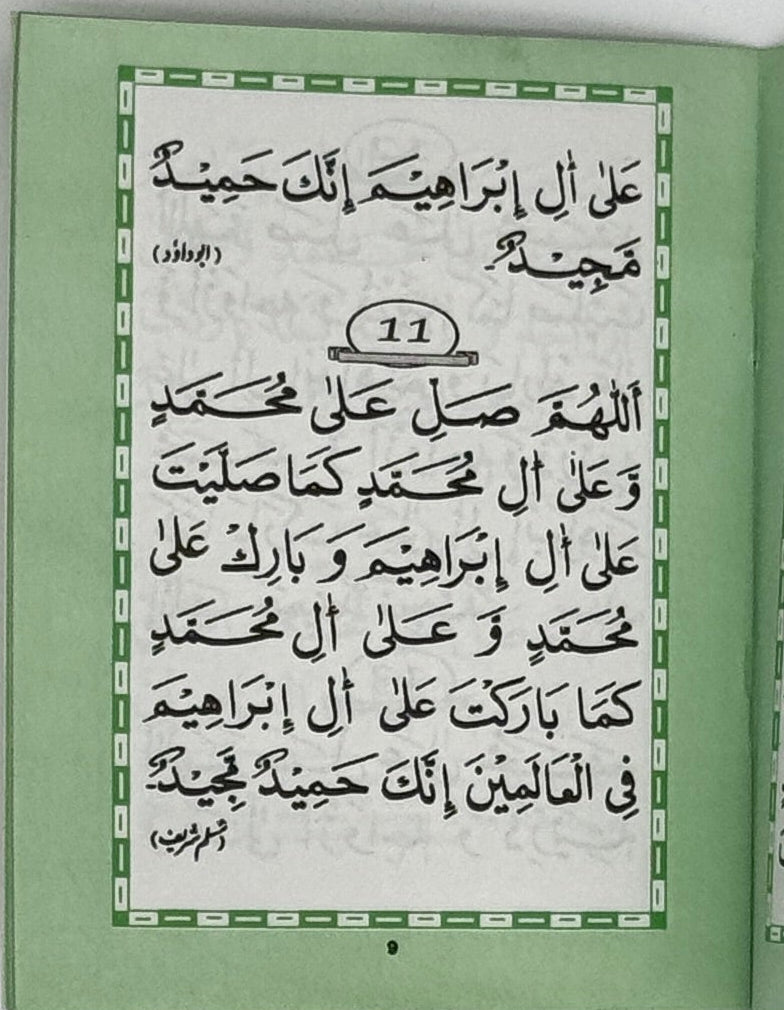 عَلىٰ أٰلِ إِبْرَاهِيْمَ إِنَّكَ حَمِيْدٌ
مَّجِيْدٌ۔ (ابوداؤد)
11
أَللّٰهُمَّ صَلِّ عَلىٰ مُحَمَّدٍ
وَّ عَلىٰ أٰلِ مُحَمَّدٍ كَمَا صَلَّيْتَ
عَلىٰ أٰلِ إِبْرَاهِيْمَ وَ بَارِكْ عَلىٰ
مُحَمَّدٍ وَّ عَلىٰ أٰلِ مُحَمَّدٍ
كَمَا بَارَكْتَ عَلىٰ أٰلِ إِبْرَاهِيْمَ
فِي الْعَالَمِيْنَ إِنَّكَ حَمِيْدٌ مَّجِيْدٌ۔
(مسلم شریف)
9